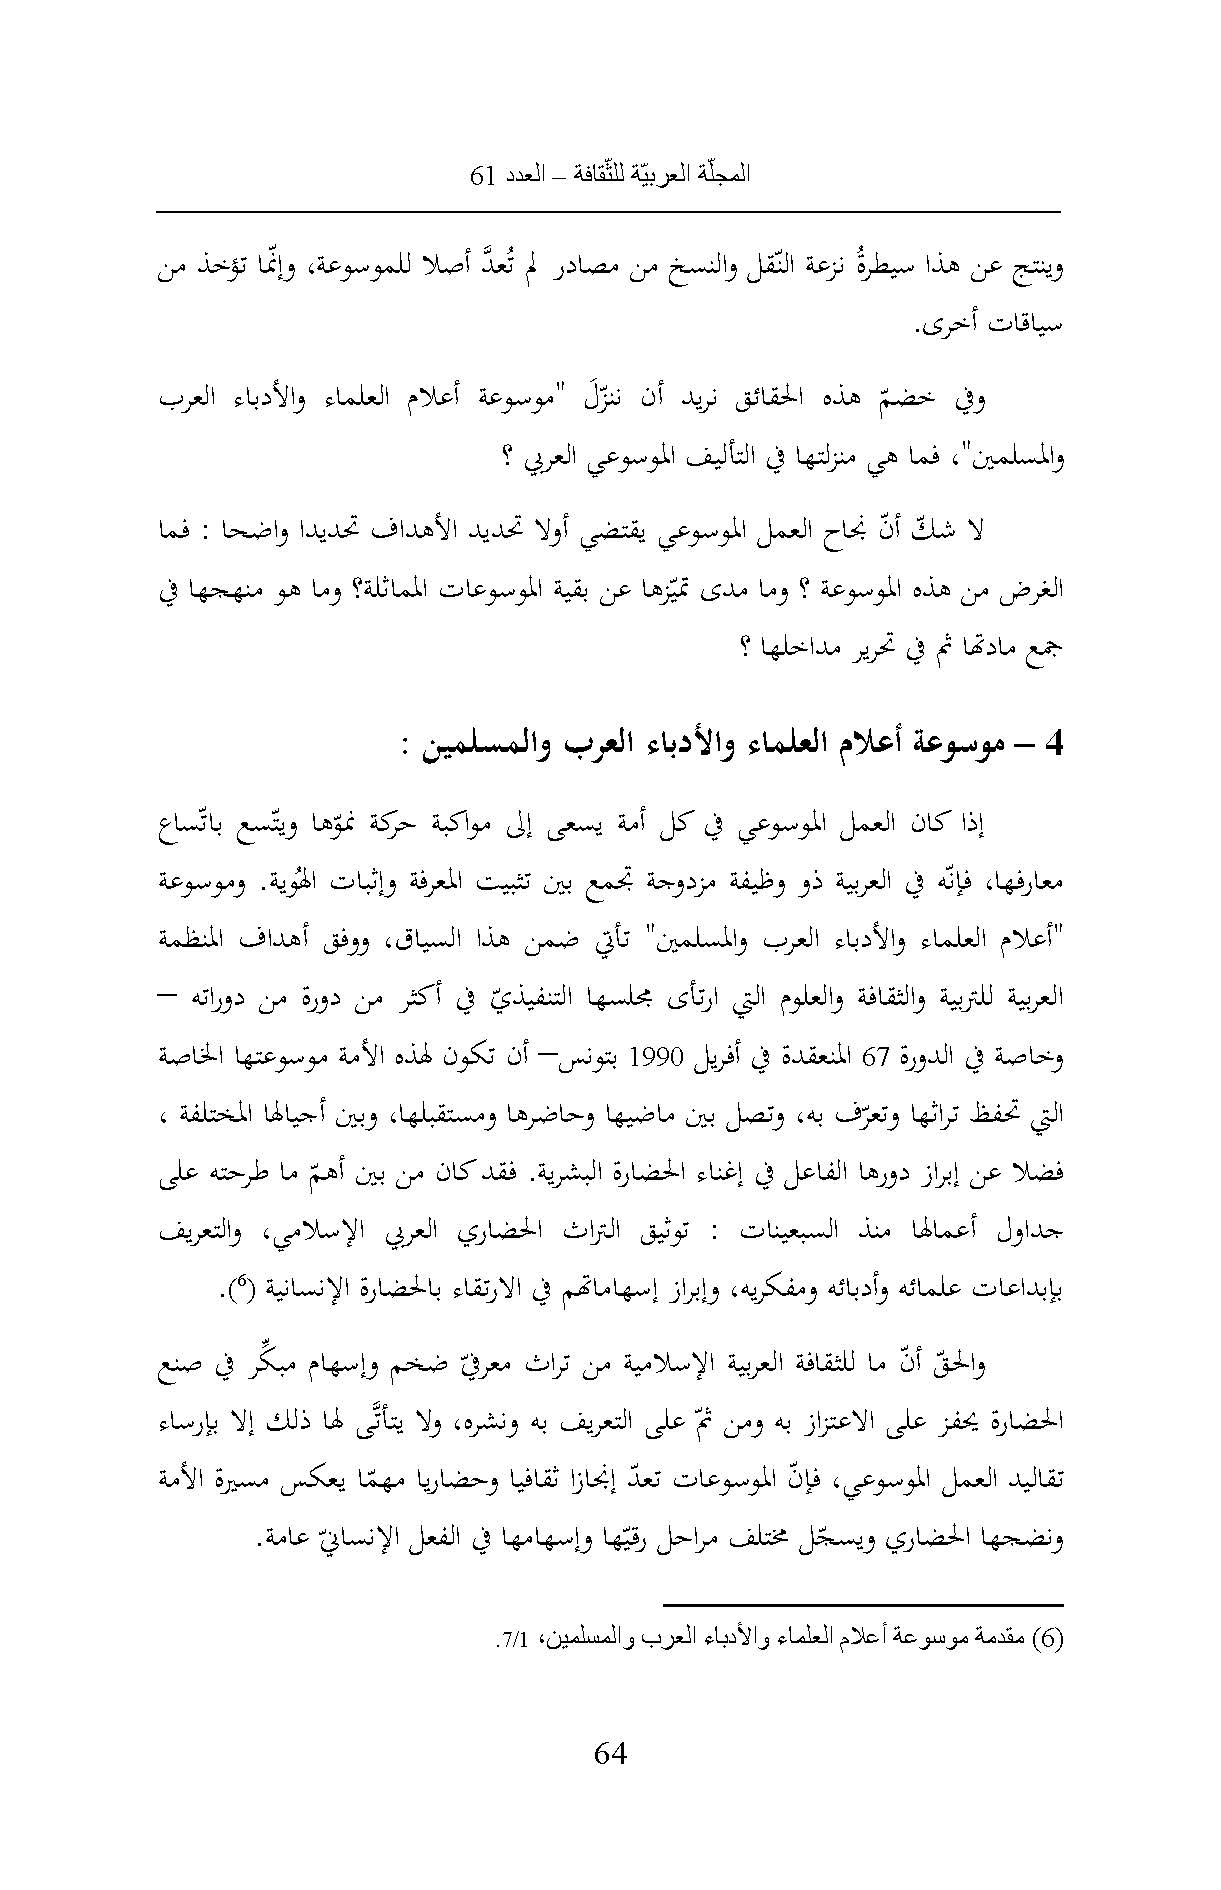 المجلّة العربيّة للثّقافة – العدد 61
وينتج عن هذا سيطرةُ نزعة النّقل والنسخ من مصادر لم تُعدَّ أصلا للموسوعة، وإنمّا تؤخذ من
سياقات أخرى.
وفي خضمّ هذه الحقائق نريد أن ننزّلَ "موسوعة أعلام العلماء والأدباء العرب
والمسلمين"، فما هي منزلتها في التأليف الموسوعي العربي ؟
لا شكّ أنّ نجاح العمل الموسوعي يقتضي أولا تحديد الأهداف تحديدا واضحا : فما
الغرض من هذه الموسوعة ؟ وما مدى تميّزها عن بقية الموسوعات المماثلة؟ وما هو منهجها في
جمع مادتها ثم في تحرير مداخلها ؟
4 – موسوعة أعلام العلماء والأدباء العرب والمسلمين :
إذا كان العمل الموسوعي في كل أمة يسعى إلى مواكبة حركة نموّها ويتّسع باتّساع
معارفها، فإنّه في العربية ذو وظيفة مزدوجة تجمع بين تثبيت المعرفة وإثبات الهُوية. وموسوعة
"أعلام العلماء والأدباء العرب والمسلمين" تأتي ضمن هذا السياق، ووفق أهداف المنظمة
العربية للتربية والثقافة والعلوم التي ارتأى مجلسها التنفيذيّ في أكثر من دورة من دوراته –
وخاصة في الدورة 67 المنعقدة في أفريل 1990 بتونس– أن تكون لهذه الأمة موسوعتها الخاصة
التي تحفظ تراثها وتعرّف به، وتصل بين ماضيها وحاضرها ومستقبلها، وبين أجيالها المختلفة ،
فضلا عن إبراز دورها الفاعل في إغناء الحضارة البشرية. فقد كان من بين أهمّ ما طرحته على
جداول أعمالها منذ السبعينات : توثيق التراث الحضاري العربي الإسلامي، والتعريف
بإبداعات علمائه وأدبائه ومفكريه، وإبراز إسهاماتهم في الارتقاء بالحضارة الإنسانية (6).
والحقّ أنّ ما للثقافة العربية الإسلامية من تراث معرفيّ ضخم وإسهام مبكِّر في صنع
الحضارة يحفز على الاعتزاز به ومن ثمّ على التعريف به ونشره، ولا يتأتَّى لها ذلك إلا بإرساء
تقاليد العمل الموسوعي، فإنّ الموسوعات تعدّ إنجازا ثقافيا وحضاريا مهمّا يعكس مسيرة الأمة
ونضجها الحضاري ويسجّل مختلف مراحل رقيّها وإسهامها في الفعل الإنسانيّ عامة.
(6) مقدمة موسوعة أعلام العلماء والأدباء العرب والمسلمين، 7/1.
64